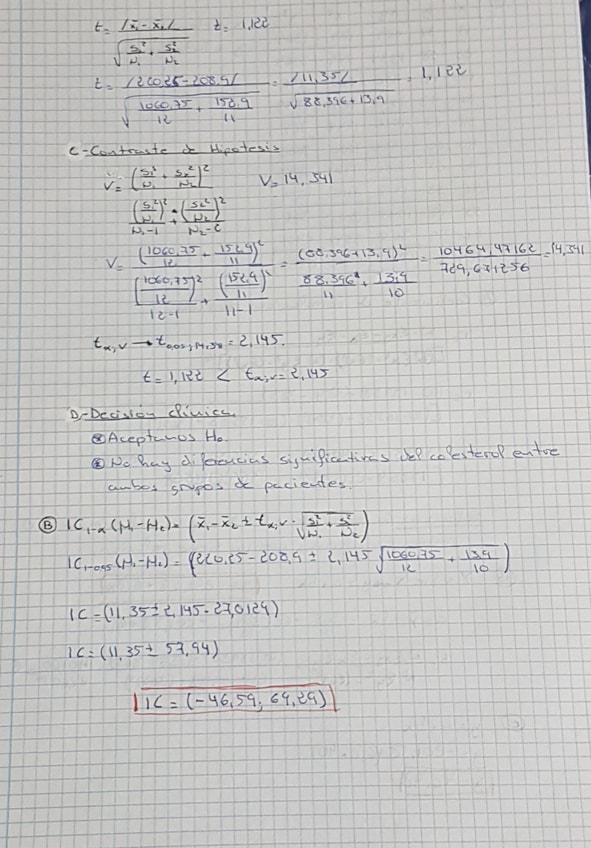 t = /x̄₁ - x̄₂/ / √(S₁²/N₁ + S₂²/N₂)   t = 1,122
t = /220,25 - 208,9/ / √(1060,75/12 + 152,9/11) = /11,35/ / √(88,396 + 13,9) = 1,122
C-Contraste de Hipotesis
V = (S₁²/N₁ + S₂²/N₂)² / ((S₁²/N₁)²/N₁-1 + (S₂²/N₂)²/N₂-2)   V = 14,541
V = (1060,75/12 + 152,9/11)² / ((1060,75/12)²/12-1 + (152,9/11)²/11-1) = (88,396 + 13,9)² / (88,396²/11 + 13,9/10) = 10464,47162 / 729,671256 = 14,341
tα,v → t0,05, 14,34 = 2,145.
t = 1,122 < tα,v = 2,145
D-Decisión clínica
Aceptamos H₀.
No hay diferencias significativas del colesterol entre
ambos grupos de pacientes.
Ⓑ IC₁₋α (M₁-M₂) = (x̄₁ - x̄₂ ± tα,v · √(S₁²/N₁ + S₂²/N₂))
IC₁₋₀,₉₅ (M₁-M₂) = (220,25 - 208,9 ± 2,145 √(1060,75/12 + 139/10))
IC = (11,35 ± 2,145 · 27,0124)
IC = (11,35 ± 57,94)
IC = (-46,59; 69,29)